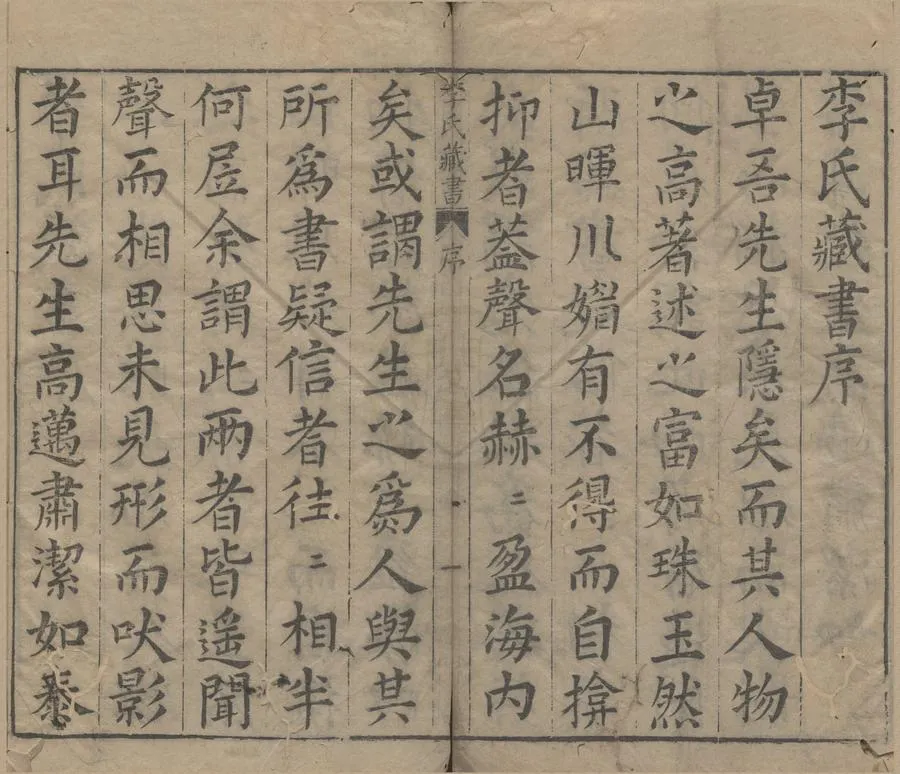 李氏藏書序
卓吾先生隱矣而其人物
之高著述之富如珠玉然
山暉川媚有不得而自揜
抑者葢聲名赫〻盈海内
李氏藏書 序 一
矣或謂先生之爲人與其
所爲書疑信者往〻相半
何居余謂此兩者皆遥聞
聲而相思未見形而吠影
者耳先生高邁肅潔如泰